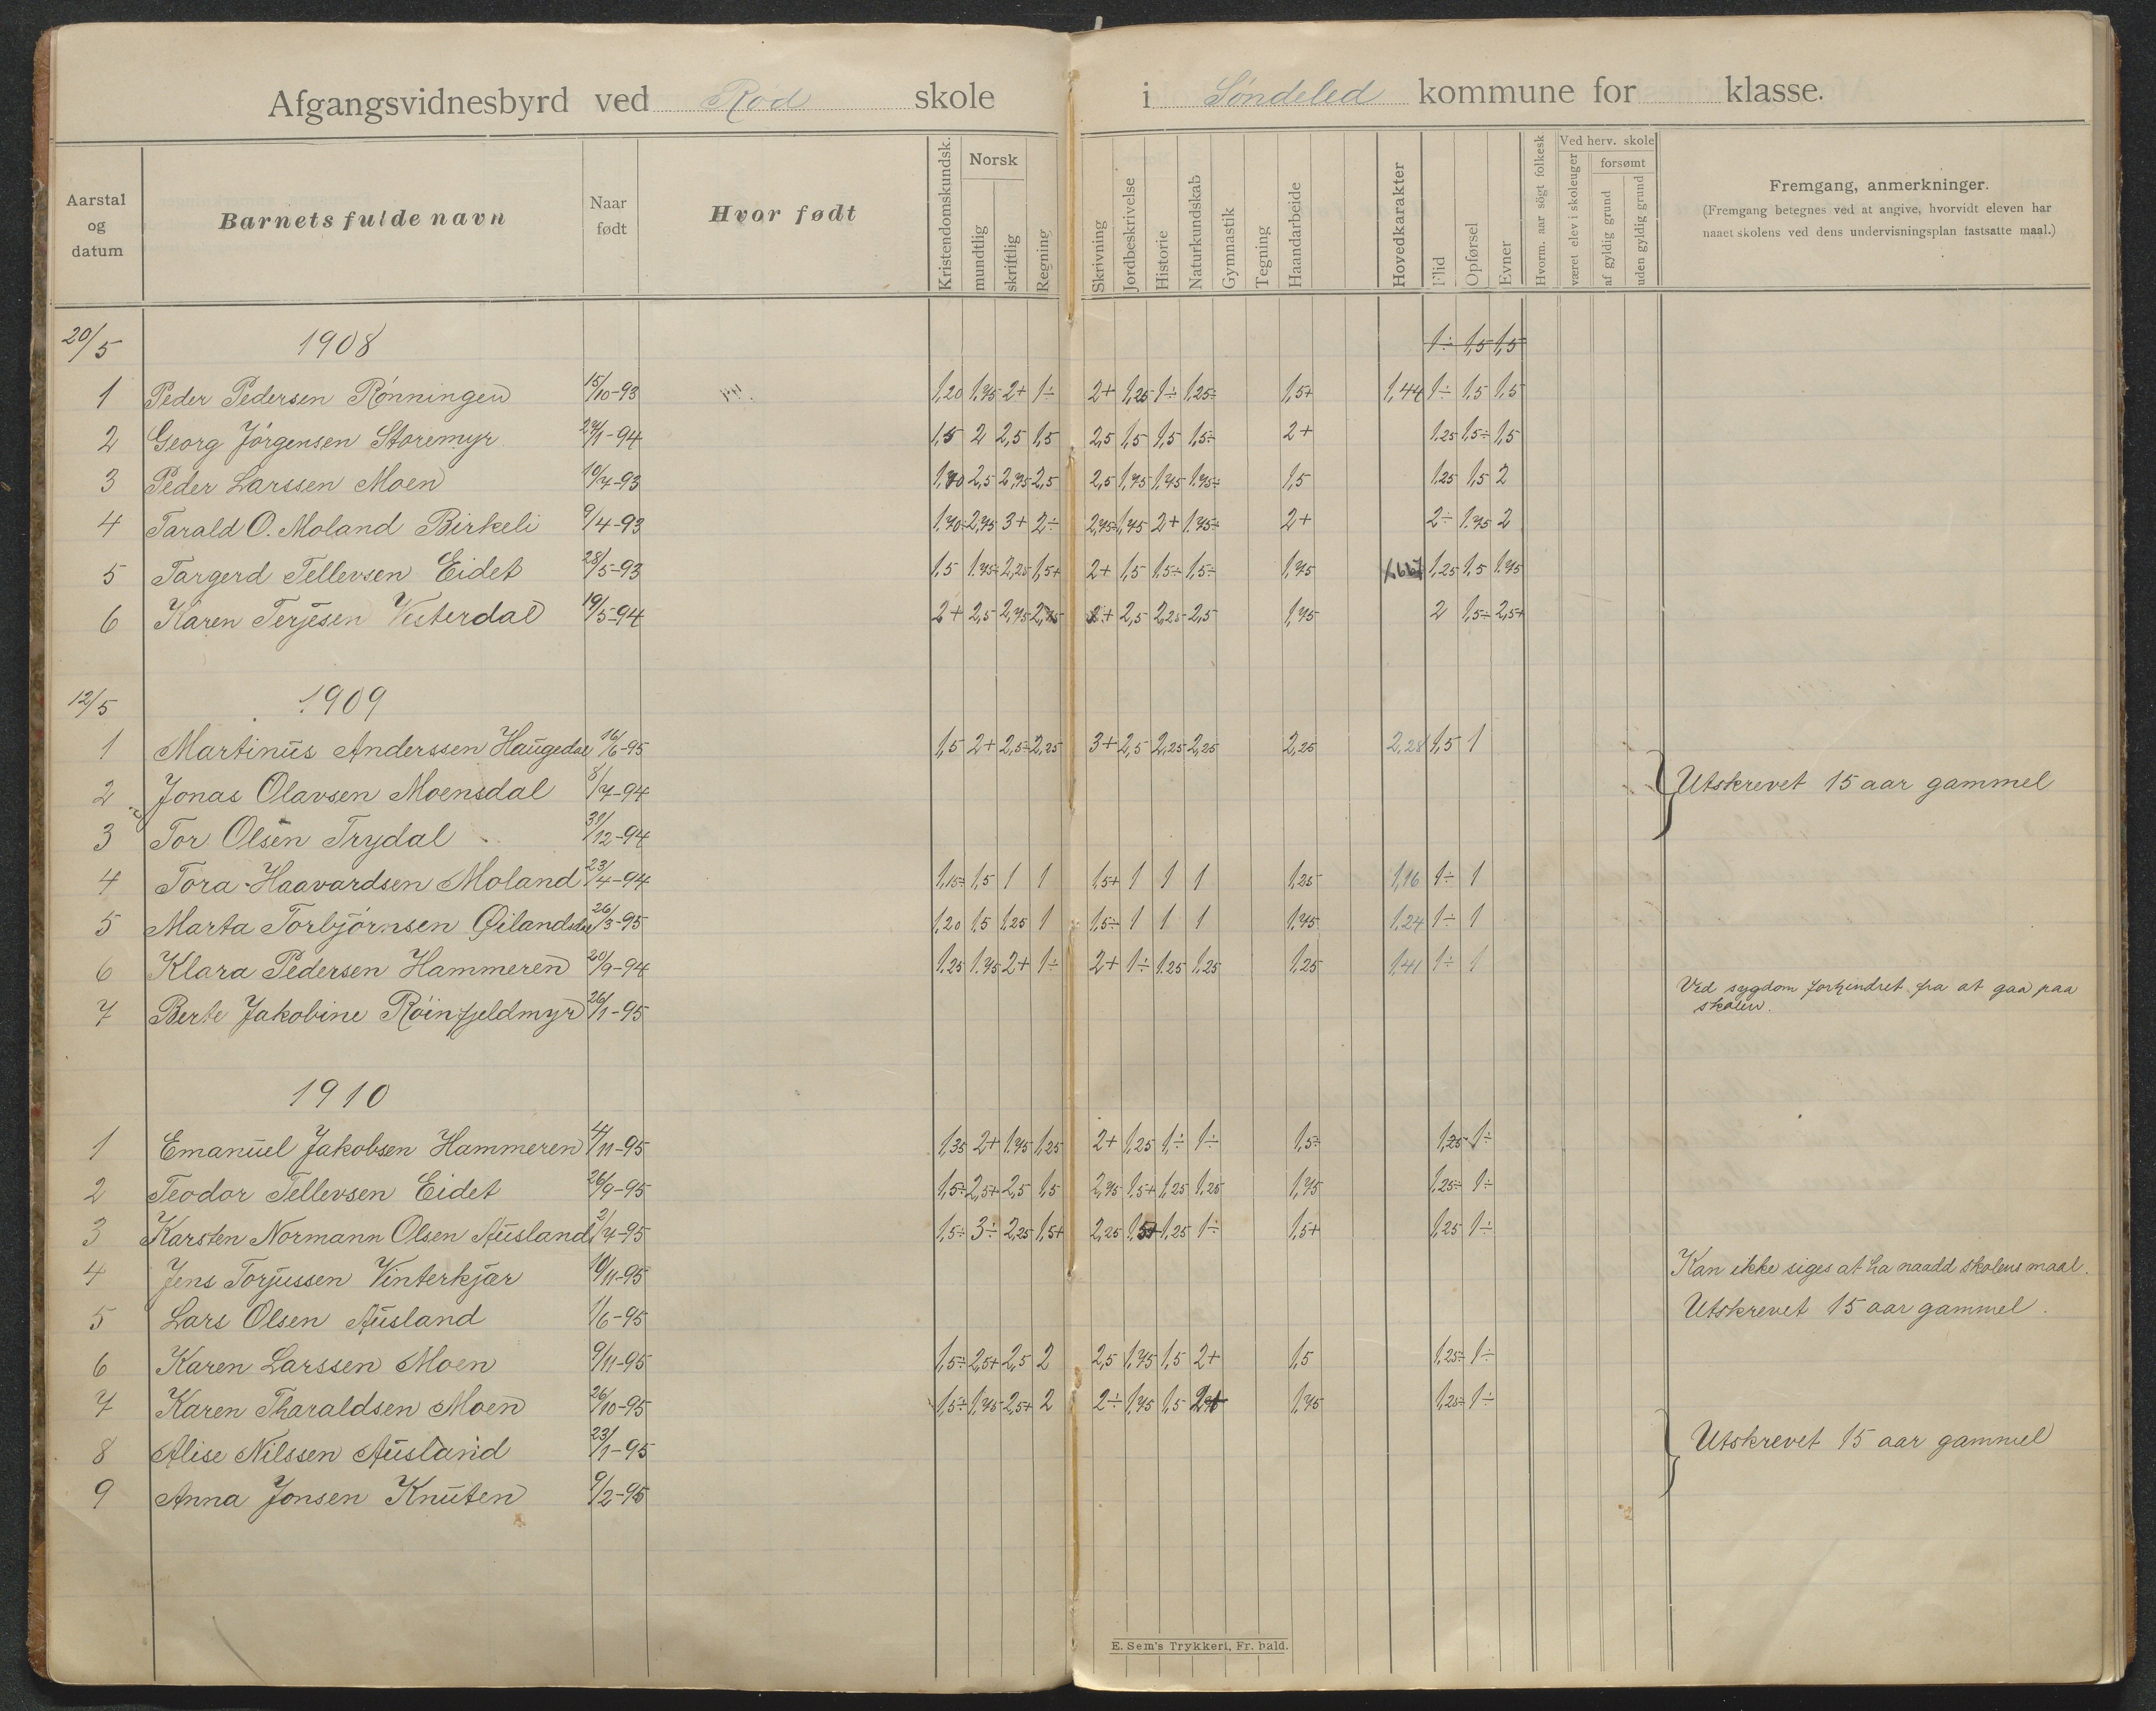 Afgangsvidnesbyrd ved Röd skole i Söndeled kommune for klasse.
Aarstal og datum | Barnets fulde navn | Naar født | Hvor født | Kristendomskundsk. | Norsk mundtlig | skriftlig | Regning | Skrivning | Jordbeskrivelse | Historie | Naturkundskab | Gymnastik | Tegning | Haandarbeide | Hovedkarakter | Flid | Opførsel | Evner | Hvorm. aar sögt folkesk | Ved herv. skole været elev i skoleuger | forsømt af gyldig grund | uden gyldig grund | Fremgang, anmerkninger.
(Fremgang betegnes ved at angive, hvorvidt eleven har
naaet skolens ved dens undervisningsplan fastsatte maal.)
20/5 1908 1÷ 1,5 1,5
1 Peder Pedersen Rønningen 15/10-93 1,20 1,75 2+ 1÷ 2+ 1,25 1÷ 1,25÷ 1,5+ 1,44 1÷ 1,5 1,5
2 Georg Jørgensen Storemyr 24/1-94 1,5 2 2,5 1,5 2,5 1,5 1,5 1,5÷ 2+ 1,25 1,5÷ 1,5
3 Peder Larssen Moen 10/7-93 1,70 2,5 2,75 2,5 2,5 1,75 1,75 1,75÷ 1,5 1,25 1,5 2
4 Tarald O. Moland Birkeli 9/4-93 1,70÷ 2,75 3+ 2÷ 2,75÷ 1,75 2+ 1,75÷ 2+ 2÷ 1,75 2
5 Targerd Tellevsen Eidet 28/5-93 1,5 1,75÷ 2,25 1,5+ 2+ 1,5 1,5÷ 1,5÷ 1,75 1,667 1,25 1,5 1,75
6 Karen Terjesen Vesterdal 19/5-94 2+ 2,5 2,75 2,75 2+ 2,5 2,25 2,5 1,75 2 1,5÷ 2,5+
12/5 1909
1 Martinus Anderssen Haugedal 16/6-95 1,5 2+ 2,5÷ 2,25 3+ 2,5 2,25 2,25 2,25 2,28 1,5 1
2 Jonas Olavsen Moensdal 8/7-94 Utskrevet 15 aar gammel
3 Tor Olsen Trydal 31/12-94
4 Tora Haavardsen Moland 23/4-94 1,15÷ 1,5 1 1 1,5+ 1 1 1 1,25 1,16 1÷ 1
5 Marta Torbjørnsen Øilandsdal 26/3-95 1,20 1,5 1,25 1 1,5÷ 1 1 1 1,75 1,24 1÷ 1
6 Klara Pedersen Hammeren 20/9-94 1,25 1,75 2+ 1÷ 2+ 1÷ 1,25 1,25 1,25 1,41 1÷ 1
7 Berte Jakobine Röinfjeldmyr 26/1-95 Ved sygdom forhindret fra at gaa paa
skolen.
1910
1 Emanuel Jakobsen Hammeren 4/11-95 1,35 2+ 1,75 1,25 2+ 1,25 1÷ 1÷ 1,5÷ 1,25 1÷
2 Teodor Tellevsen Eidet 26/9-95 1,5÷ 2,5+ 2,5 1,5 2,75 1,5+ 1,25 1,25 1,75 1,25÷ 1÷
3 Karsten Normann Olsen Ausland 2/7-95 1,5÷ 3÷ 2,25 1,5+ 2,25 1,5+ 1,25 1÷ 1,5+ 1,25 1÷
4 Jens Torjussen Vinterkjær 10/11-95 Kan ikke siges at ha naadd skolens maal.
5 Lars Olsen Ausland 1/6-95 Utskrevet 15 aar gammel.
6 Karen Larssen Moen 9/11-95 1,5÷ 2,5+ 2,5 2 2,5 1,75 1,5 2+ 1,5 1,25÷ 1÷
7 Karen Tharaldsen Moen 26/10-95 1,5÷ 1,75 2,5+ 2 2÷ 1,75 1,5 2+ 1,75 1,25÷ 1÷
8 Alise Nilssen Ausland 23/1-95 Utskrevet 15 aar gammel
9 Anna Jonsen Knuten 9/2-95
E. Sem's Trykkeri, Fr. hald.